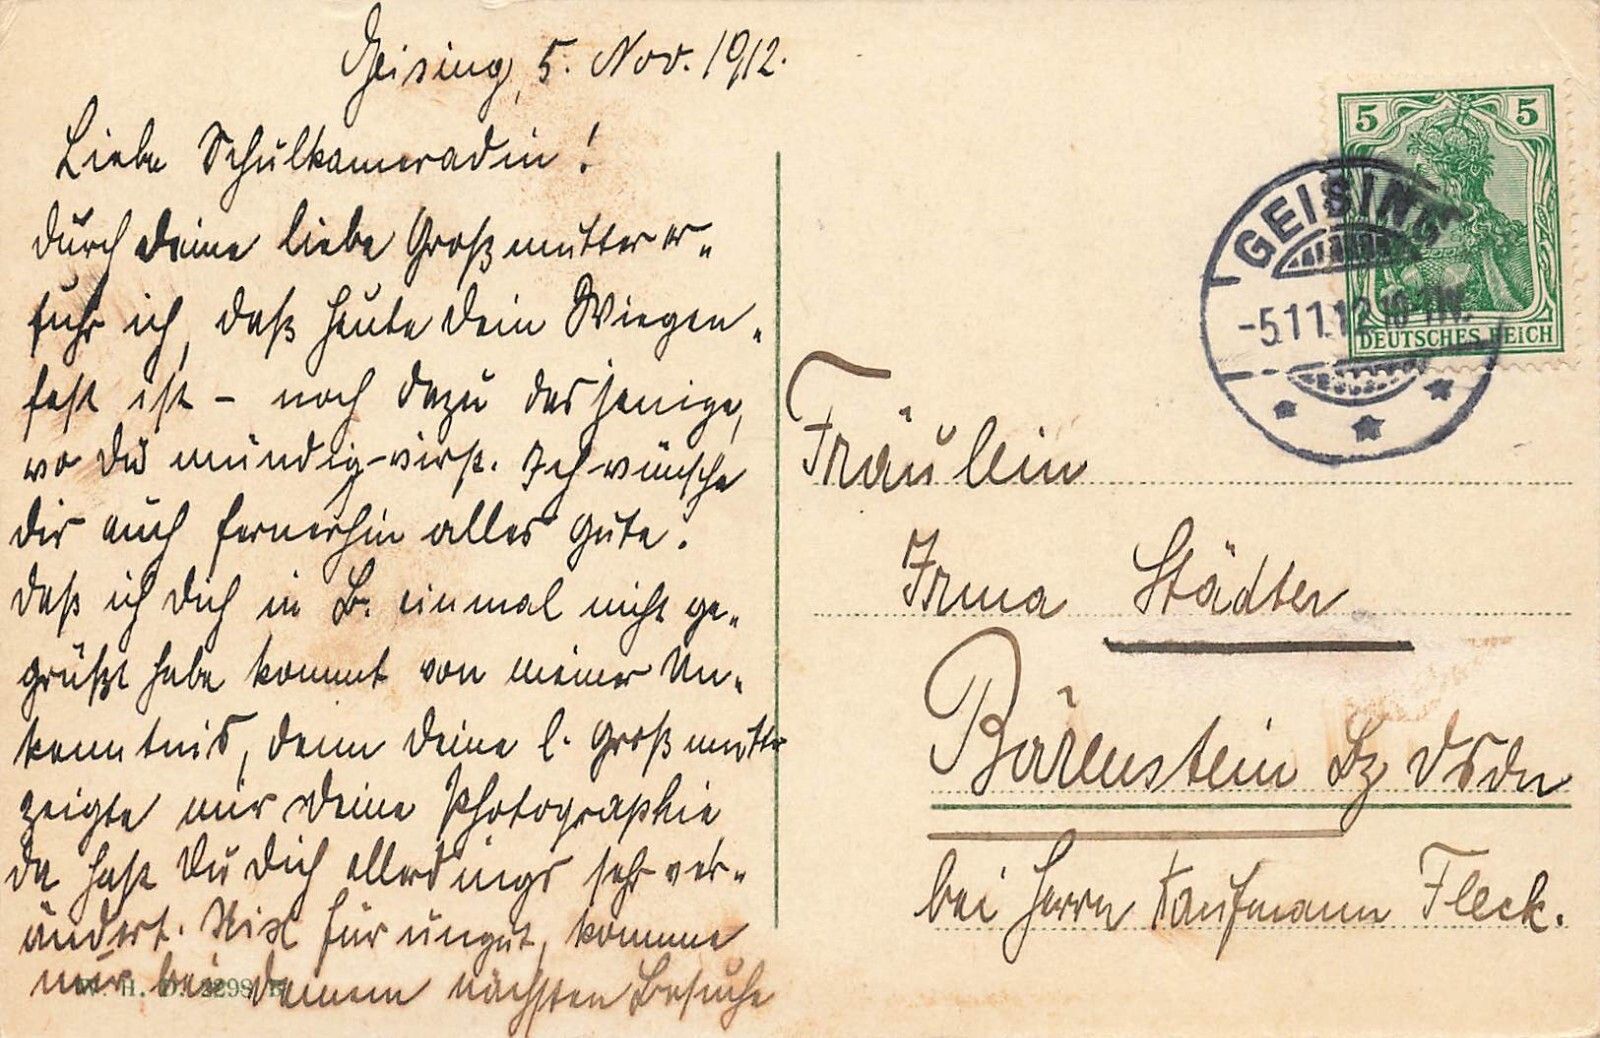 Geising, 5. Nov. 1912.
Liebe Schulkameradin!
Durch Deine liebe Großmutter er-
fuhr ich, daß heute Dein Wiegen-
fest ist – noch dazu dasjenige,
wo Du mündig wirst. Ich wünsche
Dir auch fernerhin alles Gute.
Daß ich Dich in B. einmal nicht ge-
grüßt habe kommt von meiner Un-
kenntnis, denn Deine l. Großmutter
zeigte mir Deine Photographie
da hast Du Dich allerdings sehr ver-
ändert. Nix für ungut, komme
mir bei Deinem nächsten Besuche
W. H. D. 2298
5 5
DEUTSCHES REICH
GEISING
-5.11.12.10-11V.
Fräulein
Irma Städter
Bärenstein Bz Dsdn
bei Herrn Kaufmann Fleck.